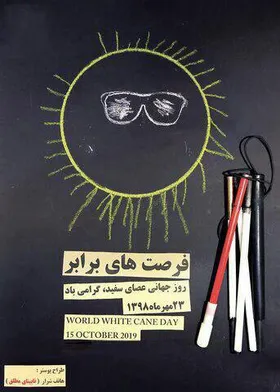 فرصت های برابر
روز جهانی عصای سفید، گرامی باد
۲۳ مهرماه ۱۳۹۸
WORLD WHITE CANE DAY
15 OCTOBER 2019
طراح پوستر :
هاتف شرار (نابینای مطلق)